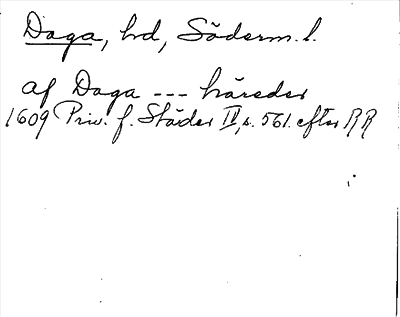 Daga, hd, Söderm. l.
af Daga --- häreder
1609 Priv. f. Städer IV, s. 561. efter RR